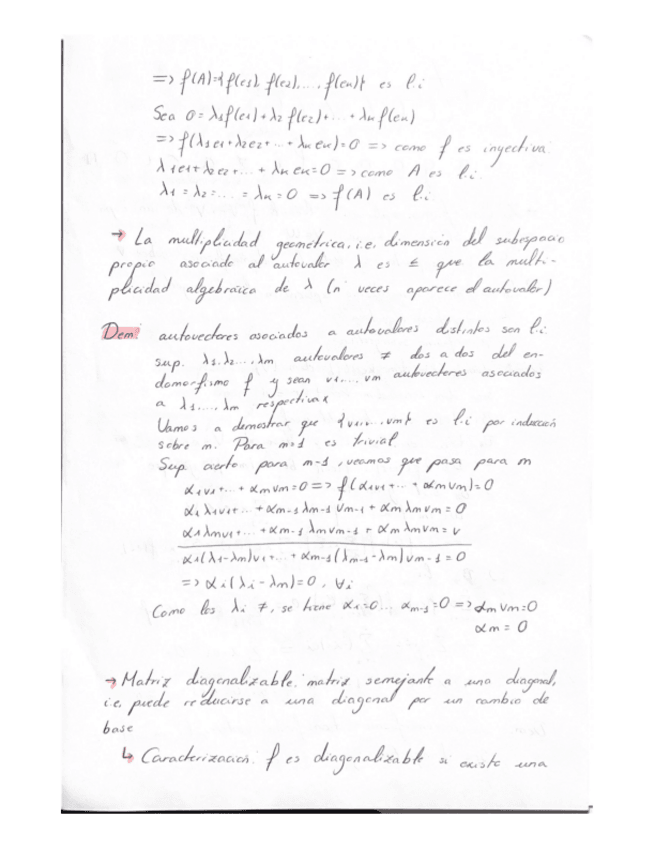 => f(A)={f(e1), f(e2),..., f(en)} es l.i
Sea 0=λ1f(e1)+λ2 f(e2)+... + λn f(en)
=> f(λ1e1+λ2e2+... + λn en)=0 => como f es inyectiva
λ1e1+λ2e2+... + λn en=0 => como A es l.i.
λ1 = λ2=... = λn = 0 => f(A) es l.i.
→ La multiplicidad geométrica, i.e. dimensión del subespacio
propio asociado al autovalor λ es ≤ que la multi-
plicidad algebraica de λ (nº veces aparece el autovalor)
Dem: autovectores asociados a autovalores distintos son l.i
sup. λ1,λ2...,λm autovalores ≠ dos a dos del en-
domorfismo f y sean v1,... vm autovectores asociados
a λ1,..., λm respectiva
Vamos a demostrar que {v1,..., vm} es l.i por inducción
sobre m. Para m=1 es trivial
Sup cierto para m-1, veamos que pasa para m
α1v1+... + αmvm=0 => f(α1v1+... + αmvm)=0
α1λ1v1+... + αm-1 λm-1 vm-1 + αm λm vm = 0
α1λmv1+... + αm-1 λm vm-1 + αm λm vm = 0
α1(λ1-λm)v1+... + αm-1(λm-1-λm)vm-1 = 0
=> αi(λi-λm)=0, ∀i
Como los λi ≠, se tiene α1=0... αm-1=0 => αmvm=0
αm = 0
→ Matriz diagonalizable: matriz semejante a una diagonal,
i.e. puede reducirse a una diagonal por un cambio de
base
↳ Caracterización: f es diagonalizable si existe una